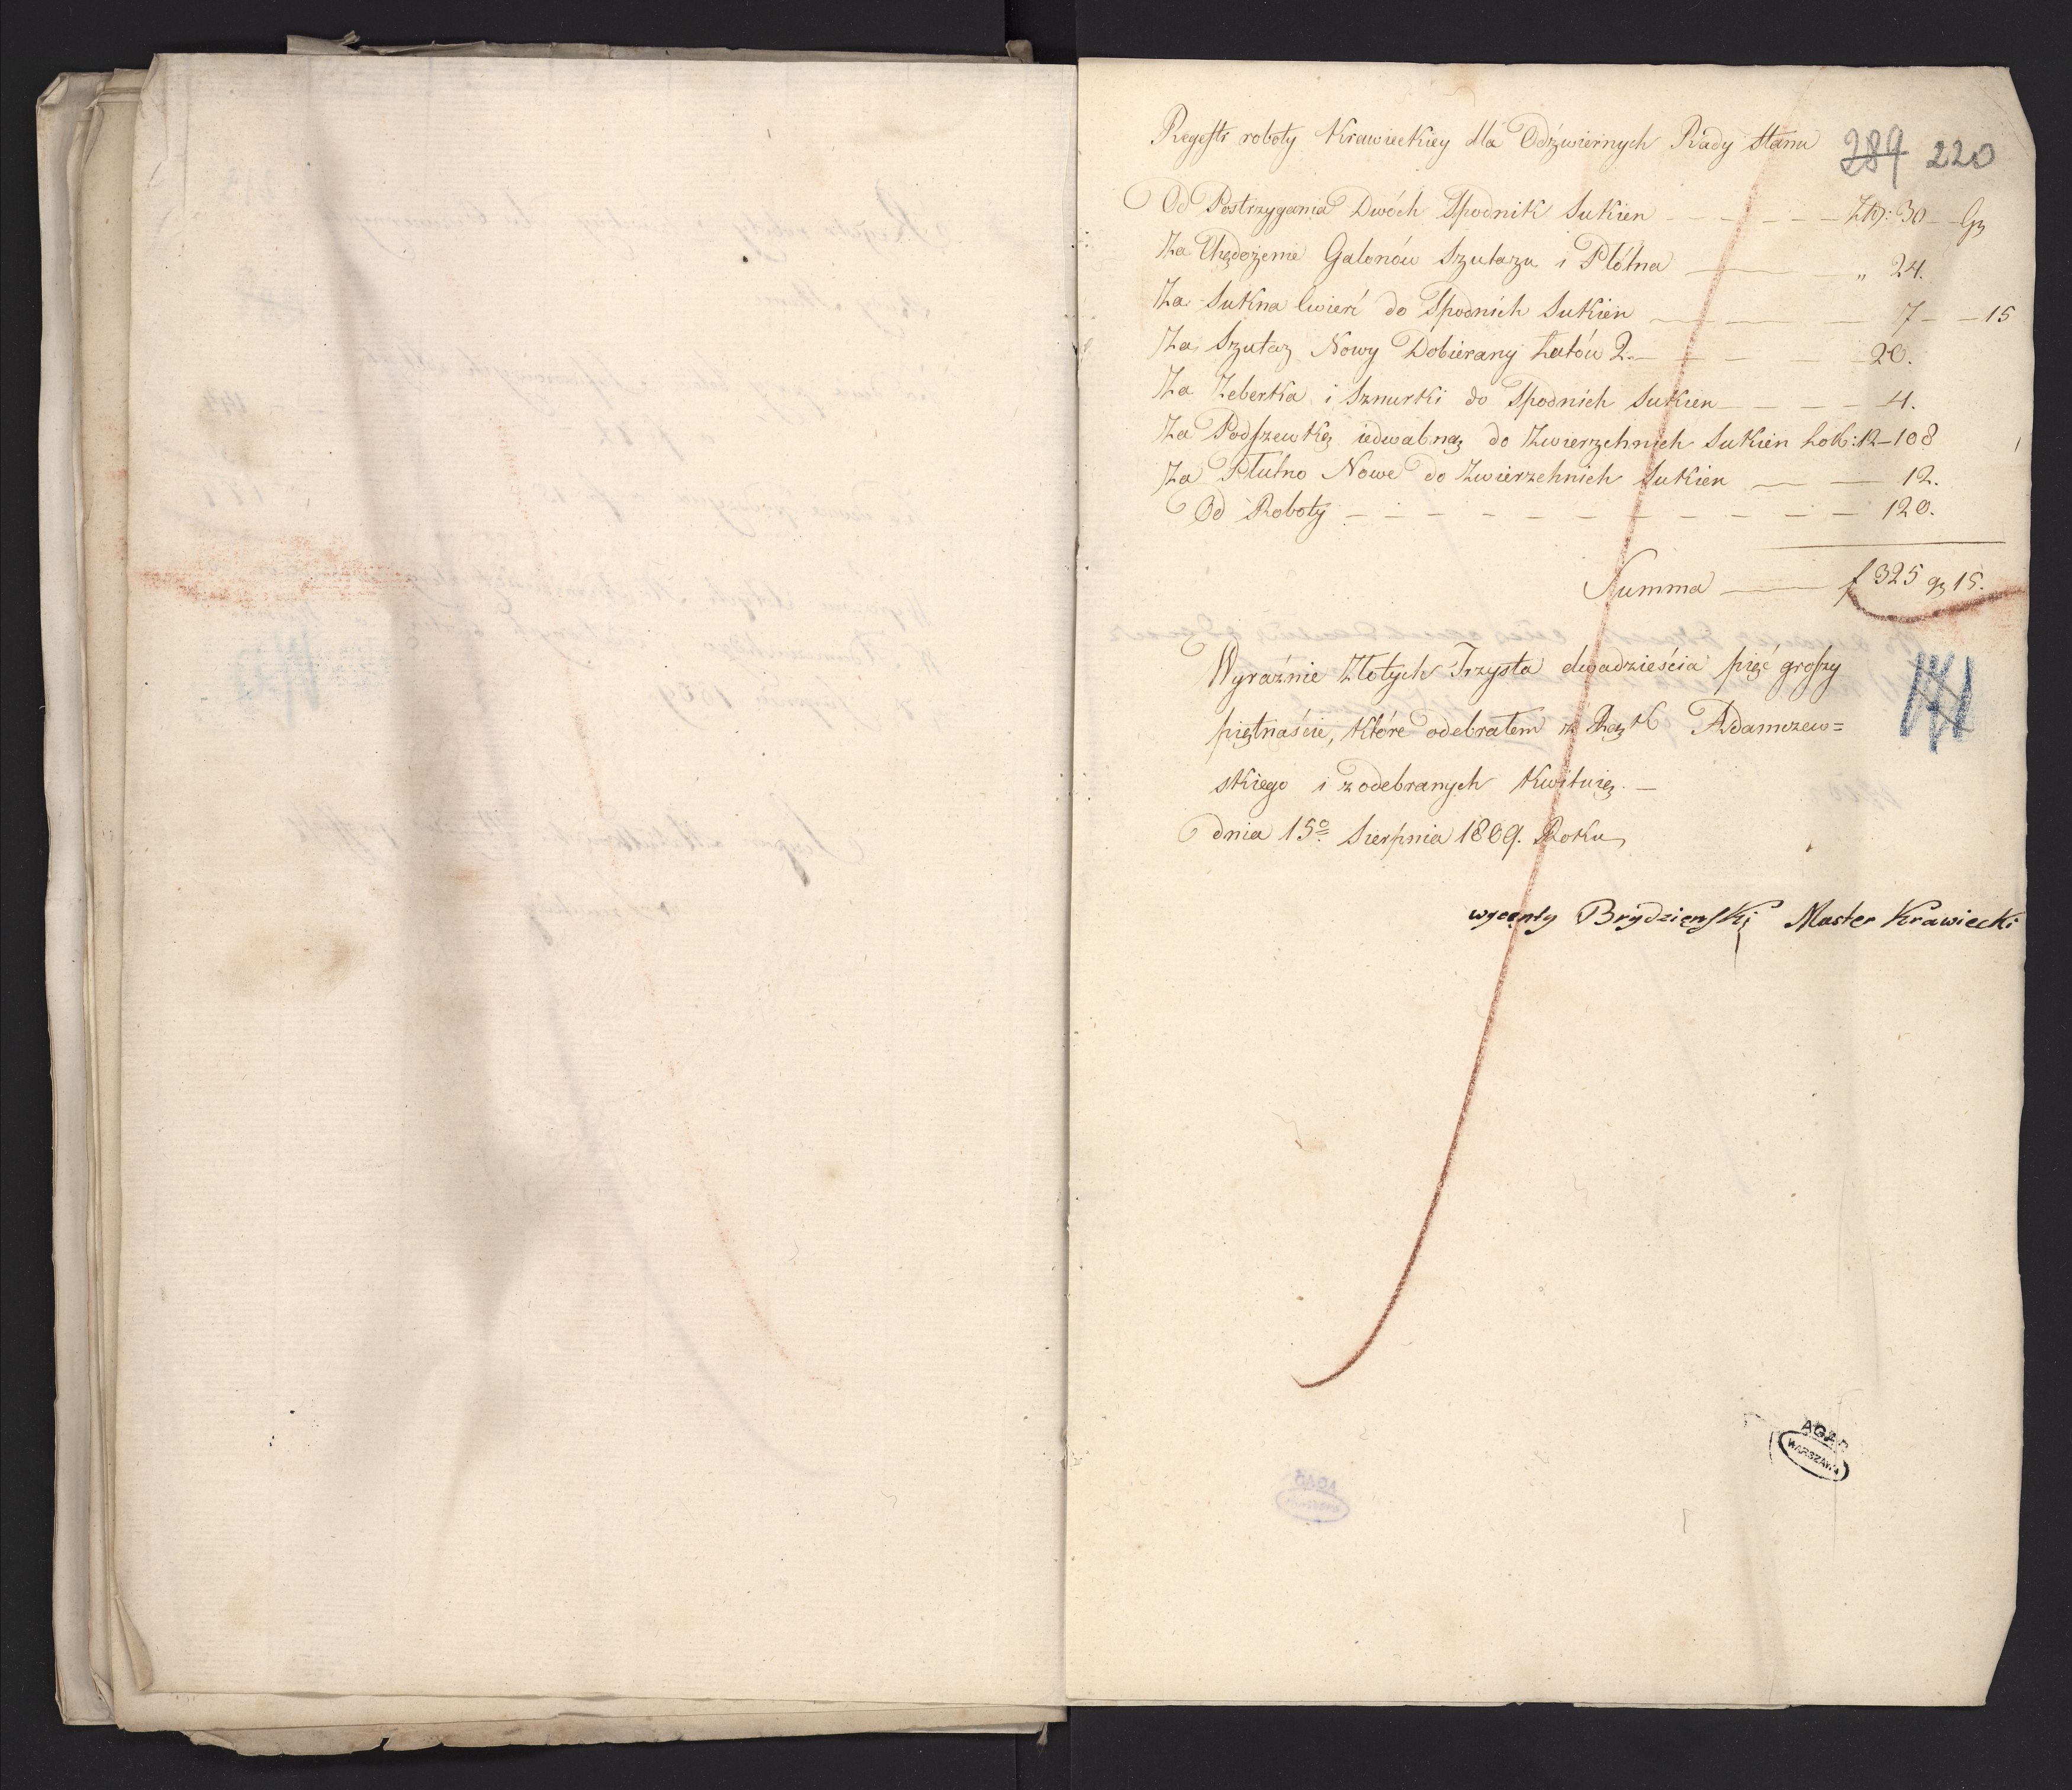 Regestr roboty Krawieckiey dla Odźwiernych Rady Stanu
289 220
Od Postrzygania Dwóch Spodnik Sukien — Zł: 30 — Gr
Za Chędożenie Galonów Szutazu i Płótna — " 24.
Za Sukna Cwierć do Spodnich Sukien — 7 — 15
Za Szutaz Nowy Dobierany Łutów 2. — 20.
Za Zeberka i Sznurki do Spodnich Sukien — 4.
Za Podszewkę iedwabną do Zwierzchnich Sukien Łok: 12 — 108
Za Płutno Nowe do Zwierzchnich Sukien — 12.
Od Roboty — 120.
Summa — f 325 gr 15.
Wyraźnie Złotych Trzysta dwadzieścia pięć groszy
piętnaście, które odebrałem z Rąk Adamczew=
skiego i z odebranych kwituię. —
dnia 15º Sierpnia 1809. Roku
wycęnty Brydzięnski Master Krawiecki
AGAD
WARSZAWA
AGAD